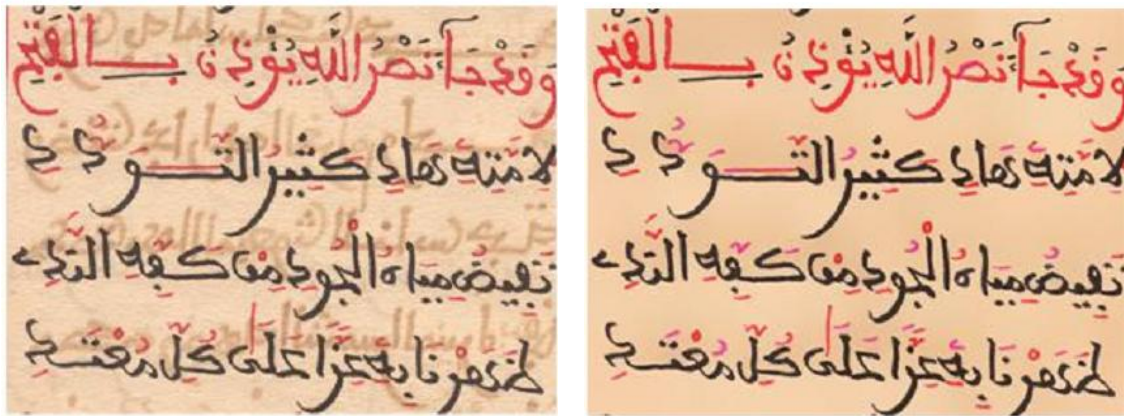 وَقَدْ جَآءَ نَصْرُ اللَّهِ يُؤْذِنُ بِالْفَتْحِ
لِأُمَّتِهِ هَادٍ كَثِيرُ التَّوَدُّدِ
تَفِيضُ مِيَاهُ الْجُودِ مِنْ كَفِّهِ النَّدِي
ظَفِرْنَا بِهِ عِزًّا عَلَى كُلِّ مُعْتَدِ
وَقَدْ جَآءَ نَصْرُ اللَّهِ يُؤْذِنُ بِالْفَتْحِ
لِأُمَّتِهِ هَادٍ كَثِيرُ التَّوَدُّدِ
تَفِيضُ مِيَاهُ الْجُودِ مِنْ كَفِّهِ النَّدِي
ظَفِرْنَا بِهِ عِزًّا عَلَى كُلِّ مُعْتَدِ